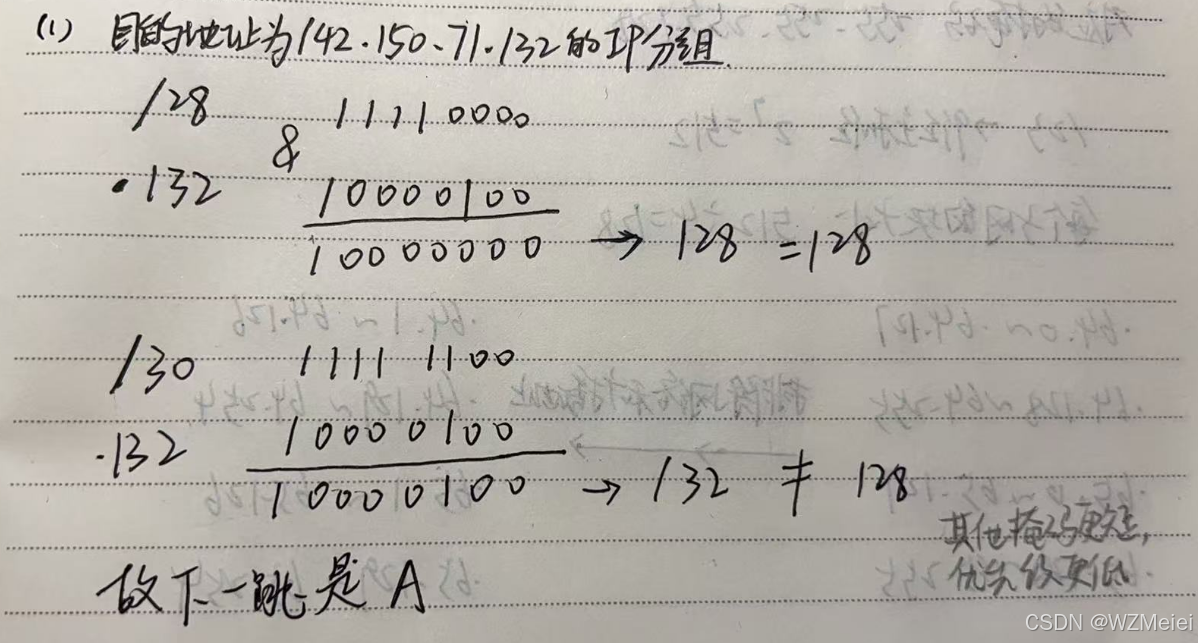 (1) 目的地址为142.150.71.132的IP分组
/28 11110000
&
·132 10000100
10000000 → 128 =128
/30 1111 1100
.132 10000100
10000100 → 132 ≠ 128
其他掩码更短,
优先级更低
故下一跳是A
CSDN @WZMeiei